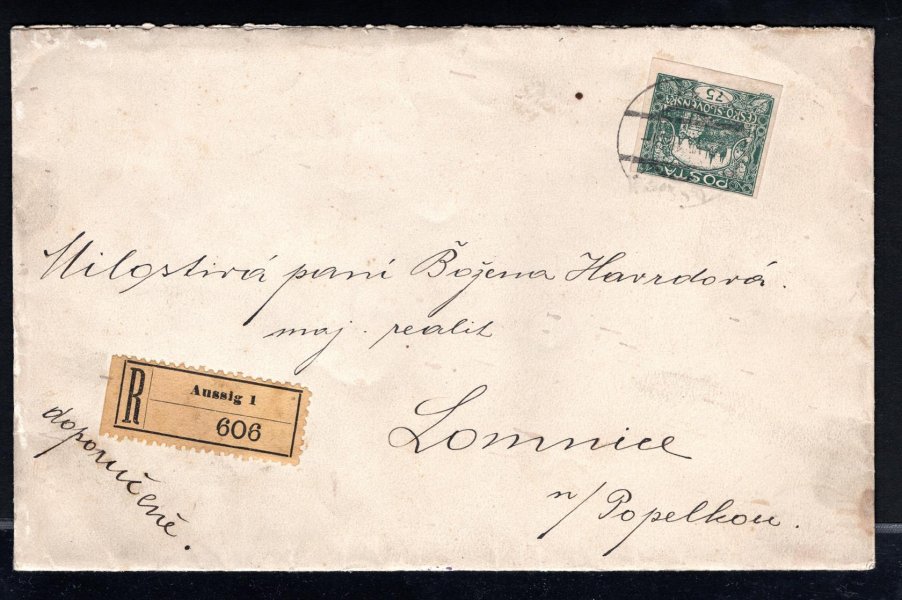 75
ČESKO-SLOVENSKÁ
POŠTA
Milostivá paní Božena Havrdová.
maj. realit
R
Aussig 1
606
Lomnice
n/Popelkou.
doporučeně.